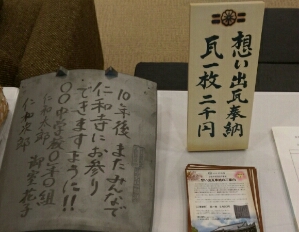 10年後またみんなで
仁和寺にお参り
できますように!!
〇〇中学校〇年〇組
仁和太郎 御室花子
仁和次郎
想い出瓦奉納
瓦一枚二千円